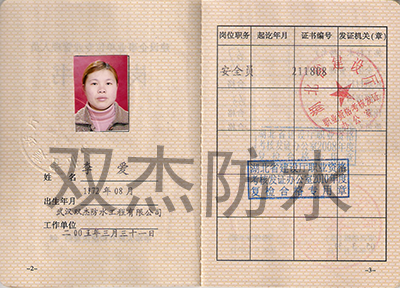 李 爱
姓 名
1972年08月
出生年月
武汉双杰防水工程有限公司
工作单位
二00五年三月三十一日
-2-
岗位职务 起讫年月 证书编号 发证机关(章)
安全员 211808
湖北省建设厅
职业资格考核发证
办公室
湖北省建设厅职业资格
复检合格专用章
-3-
双杰防水